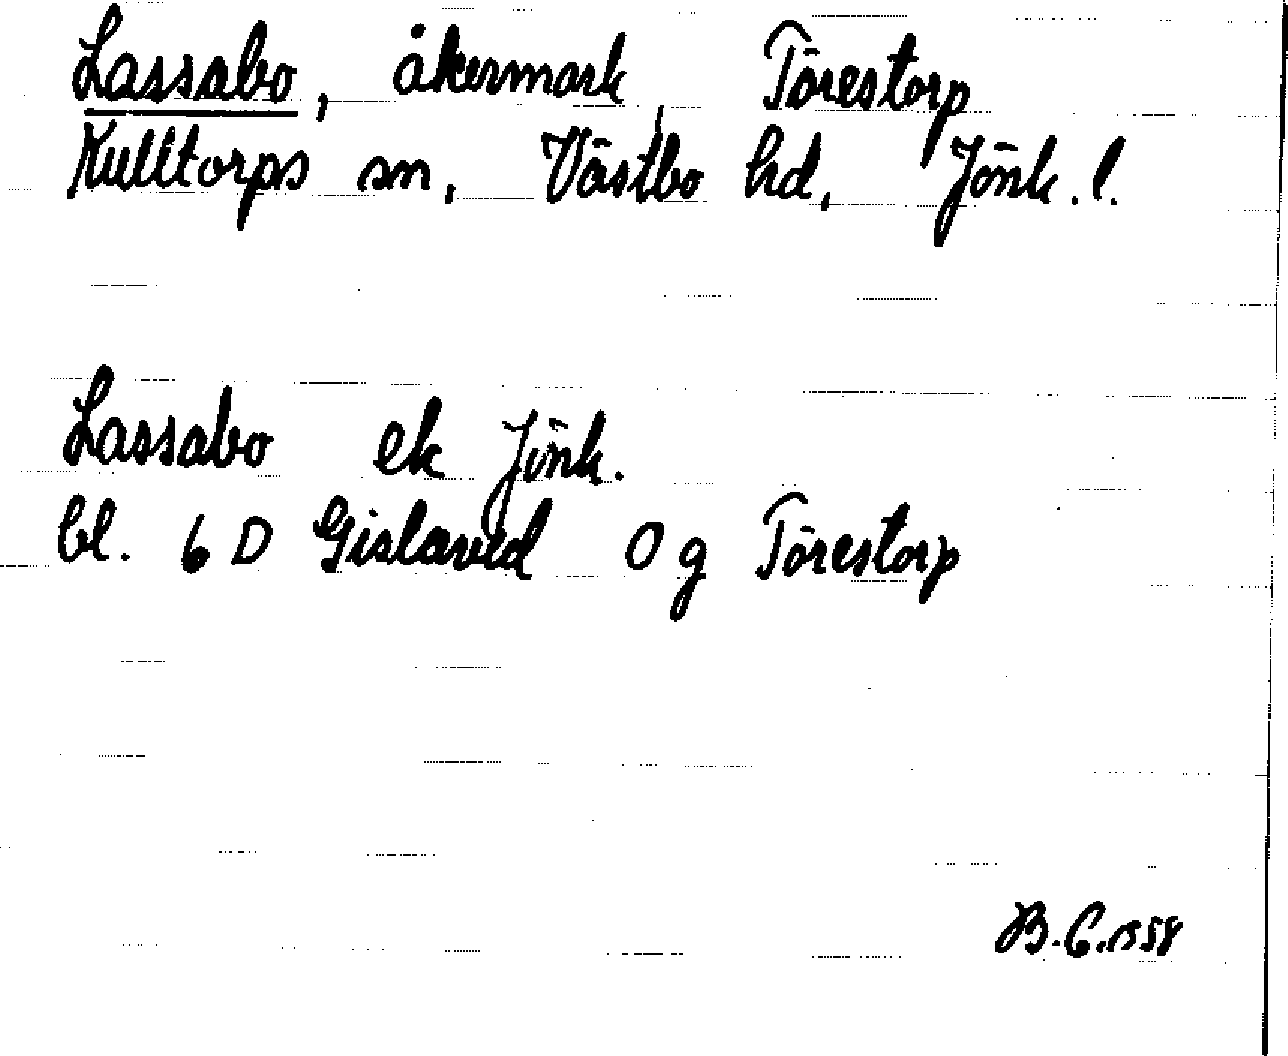 Lassabo, åkermark, Törestorp
Kulltorps sn, Västbo hd, Jönk. l.
Lassabo ek Jönk.
bl. 6 D Gislaved 0 g Törestorp